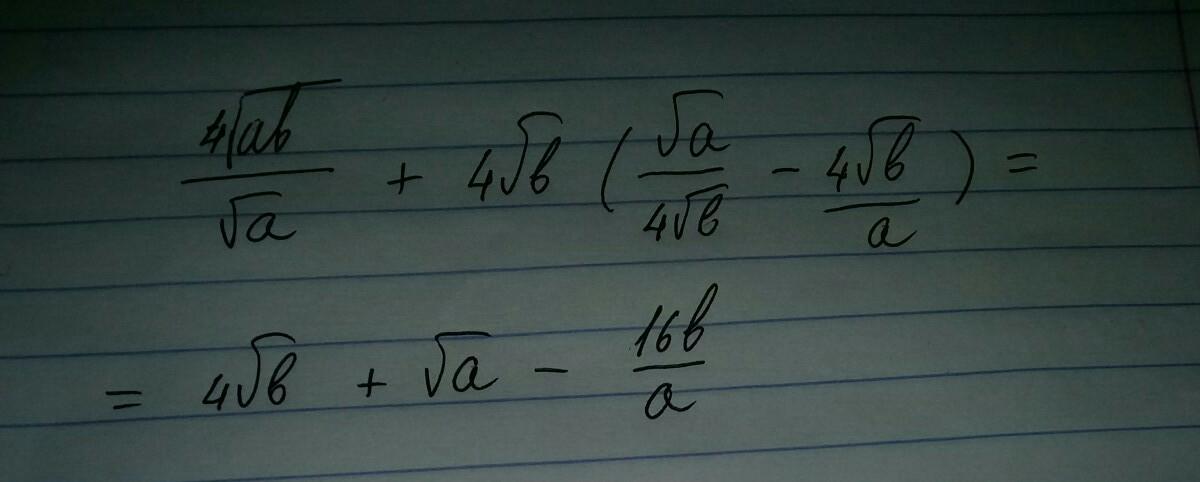 4√ab/√a + 4√b (√a/4√b - 4√b/a) =
= 4√b + √a - 16b/a